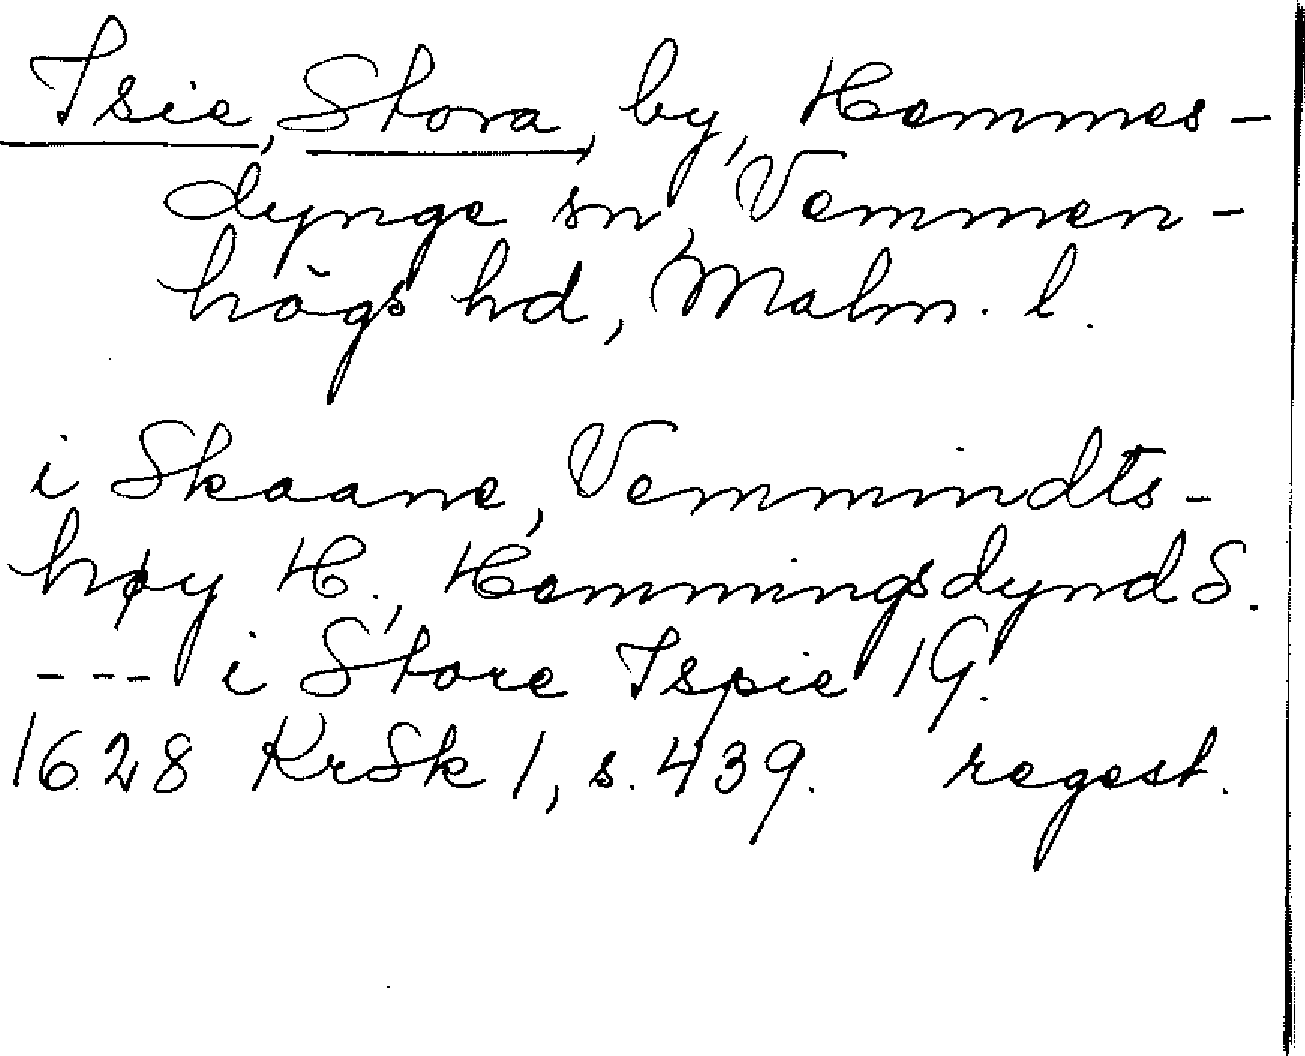 Isie, Stora, by, Hemmes-
dynge sn, Vemmen-
högs hd, Malm. l.
i Skaane, Vemmindts-
høy H., Hemmingsdynd S.
--- i Store Ispie 1 G.
1628 KrSk 1, s. 439. regest.